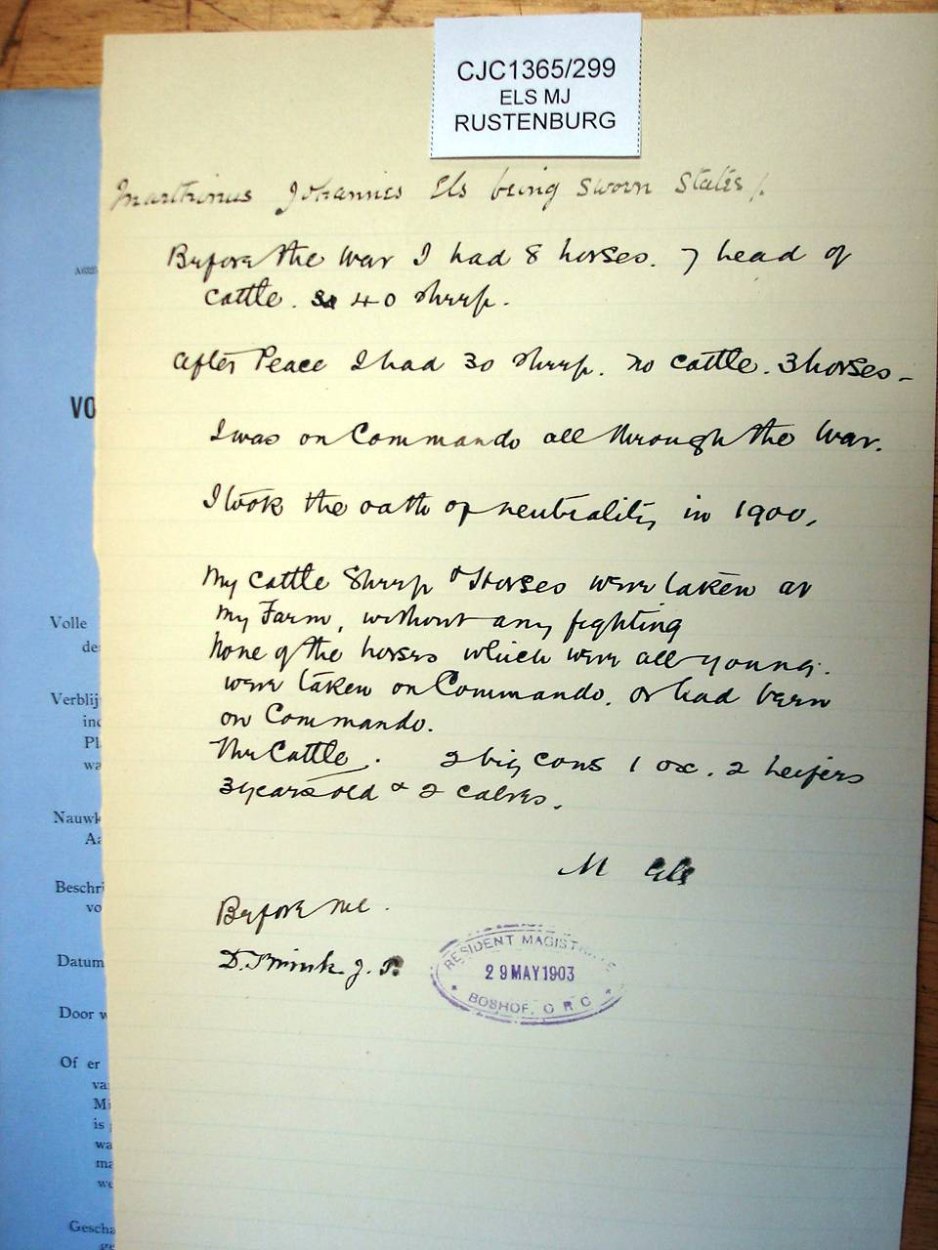 CJC1365/299
ELS MJ
RUSTENBURG
Marthinus Johannes Els being sworn States/.
Before the War I had 8 horses. 7 head of
cattle. 40 sheep.
After Peace I had 30 sheep. no cattle. 3 horses –
I was on Commando all through the War.
I took the oath of neutrality in 1900.
My cattle Sheep & Horses were taken at
my Farm, without any fighting
None of the horses which were all young.
were taken on Commando. or had been
on Commando.
The Cattle. 2 big cows 1 ox. 2 heifers
3 years old & 2 calves.
M Els
Before me.
D. J. P.
RESIDENT MAGISTRATE
29 MAY 1903
BOSHOF, O R C
VO
Volle
de
Verblij
inc
Pl
wa
Nauwk
Aa
Beschri
vo
Datum
Door w
Of er
va
M
is
wa
ma
we
Gescha
ge